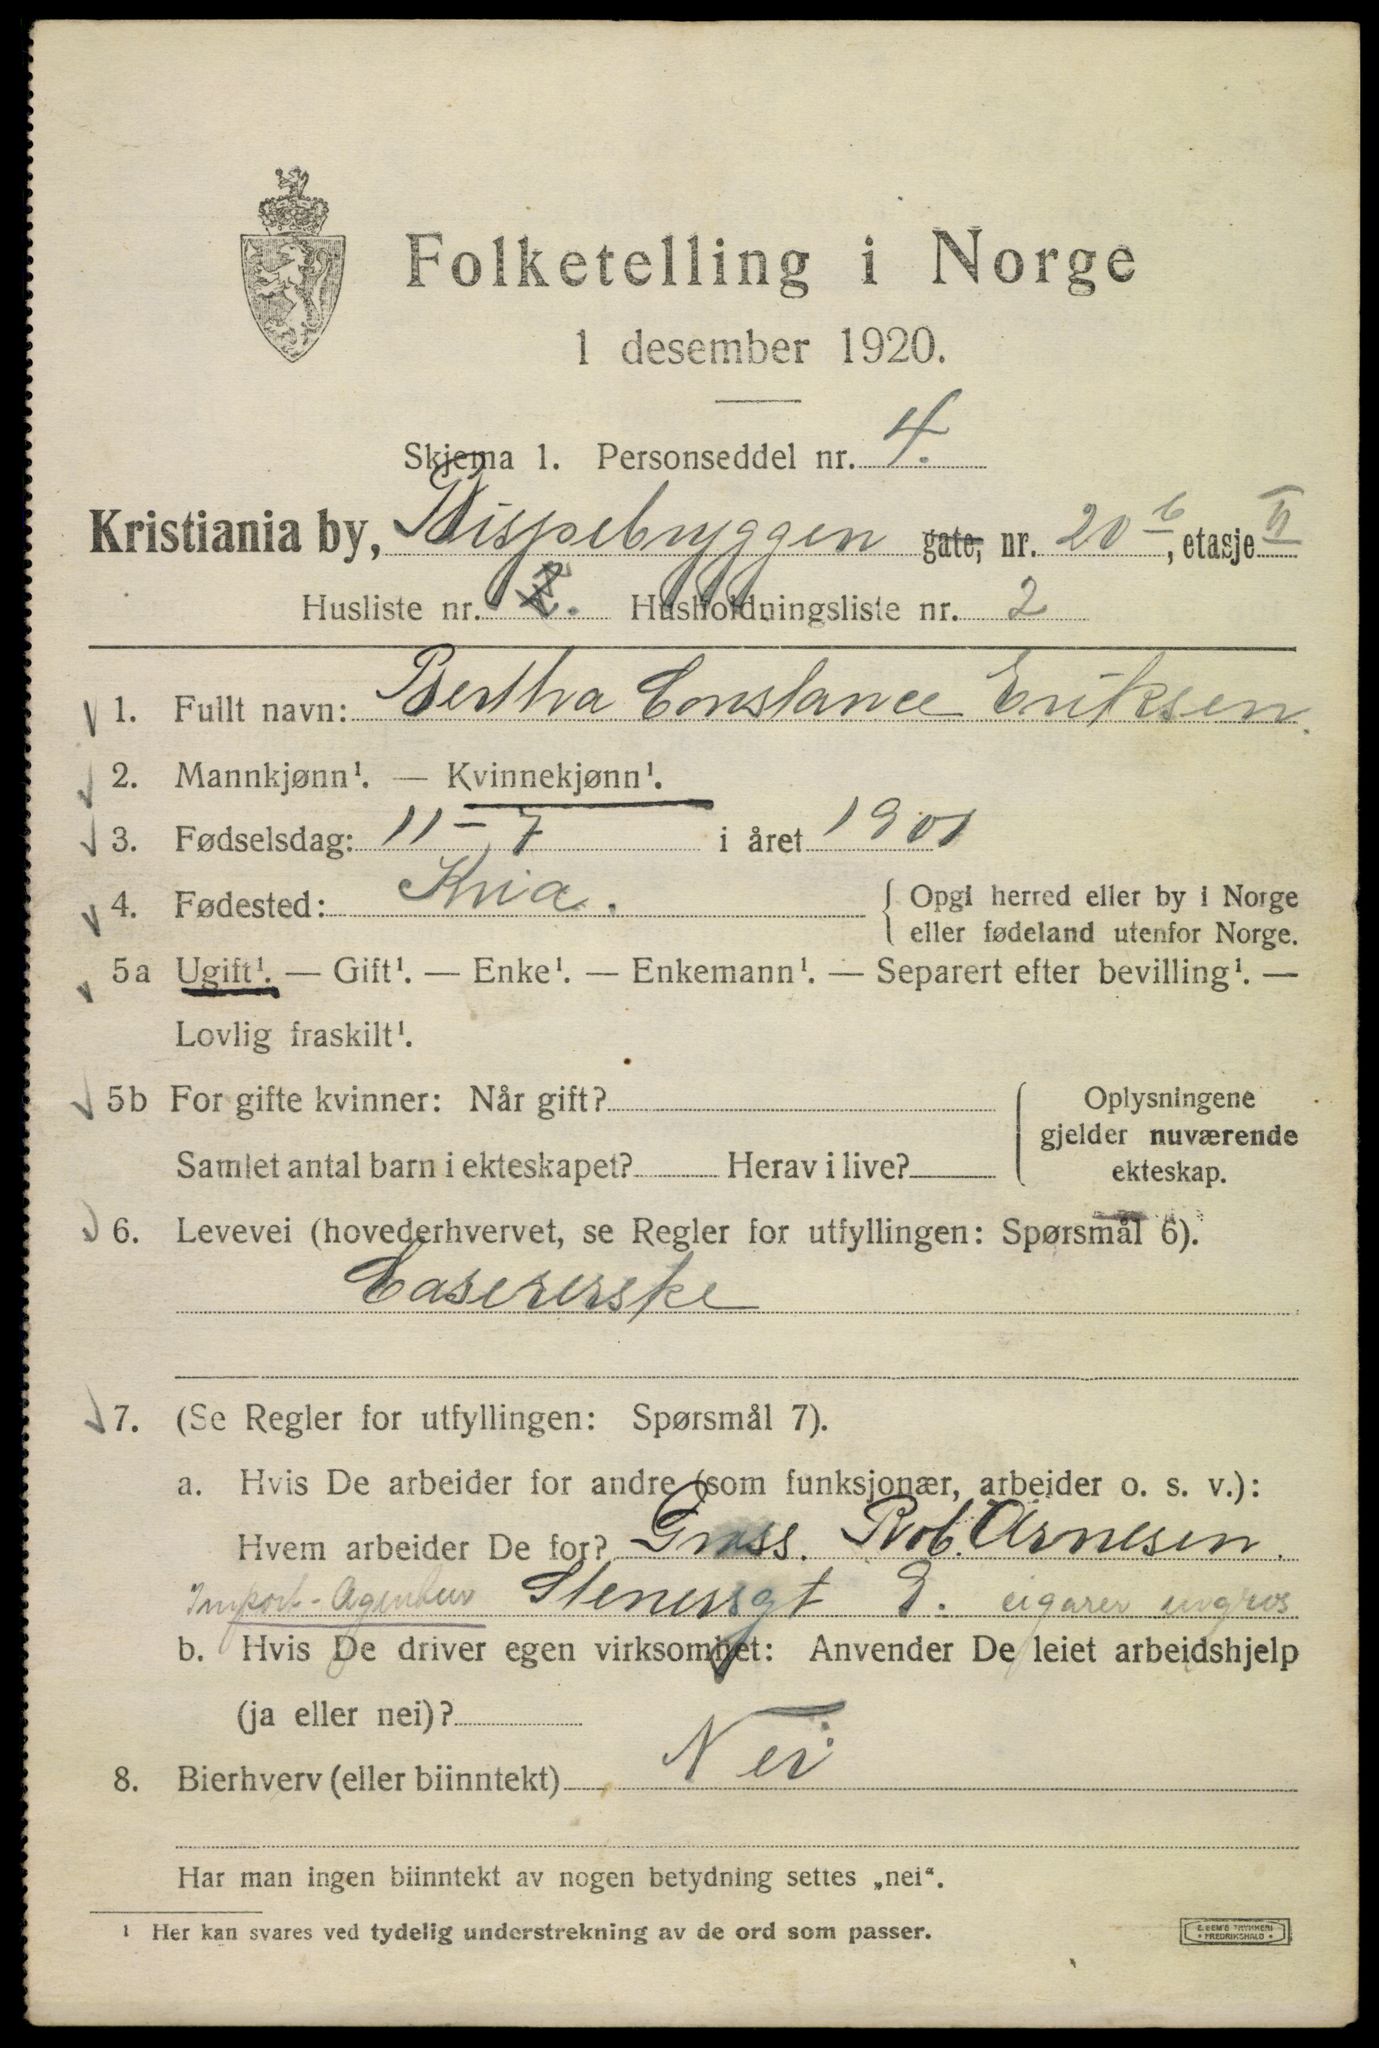 Folketelling i Norge
1 desember 1920.
Skjema 1. Personseddel nr. 4.
Kristiania by, Vippebryggen gate, nr. 20 b, etasje II
Husliste nr. 2. Husholdningsliste nr. 2
1. Fullt navn: Bertha Constance Eriksen.
2. Mannkjønn¹. — Kvinnekjønn¹.
3. Fødselsdag: 11 – 7 i året 1901
4. Fødested: Kria. { Opgi herred eller by i Norge
eller fødeland utenfor Norge.
5a Ugift¹. — Gift¹. — Enke¹. — Enkemann¹. — Separert efter bevilling¹. —
Lovlig fraskilt¹.
5b For gifte kvinner: Når gift? Oplysningene
gjelder nuværende
Samlet antal barn i ekteskapet? Herav i live? ekteskap.
6. Levevei (hovederhvervet, se Regler for utfyllingen: Spørsmål 6).
Casererske
7. (Se Regler for utfyllingen: Spørsmål 7).
a. Hvis De arbeider for andre (som funksjonær, arbeider o. s. v.):
Hvem arbeider De for? Gross. Rob. Arnesen.
Import-Agentur Stenersgt 9. cigarer engros
b. Hvis De driver egen virksomhet: Anvender De leiet arbeidshjelp
(ja eller nei)?
8. Bierhverv (eller biinntekt) Nei
Har man ingen biinntekt av nogen betydning settes „nei“.
¹ Her kan svares ved tydelig understrekning av de ord som passer.
E. SEM'S TRYKKERI
• FREDRIKSHALD •